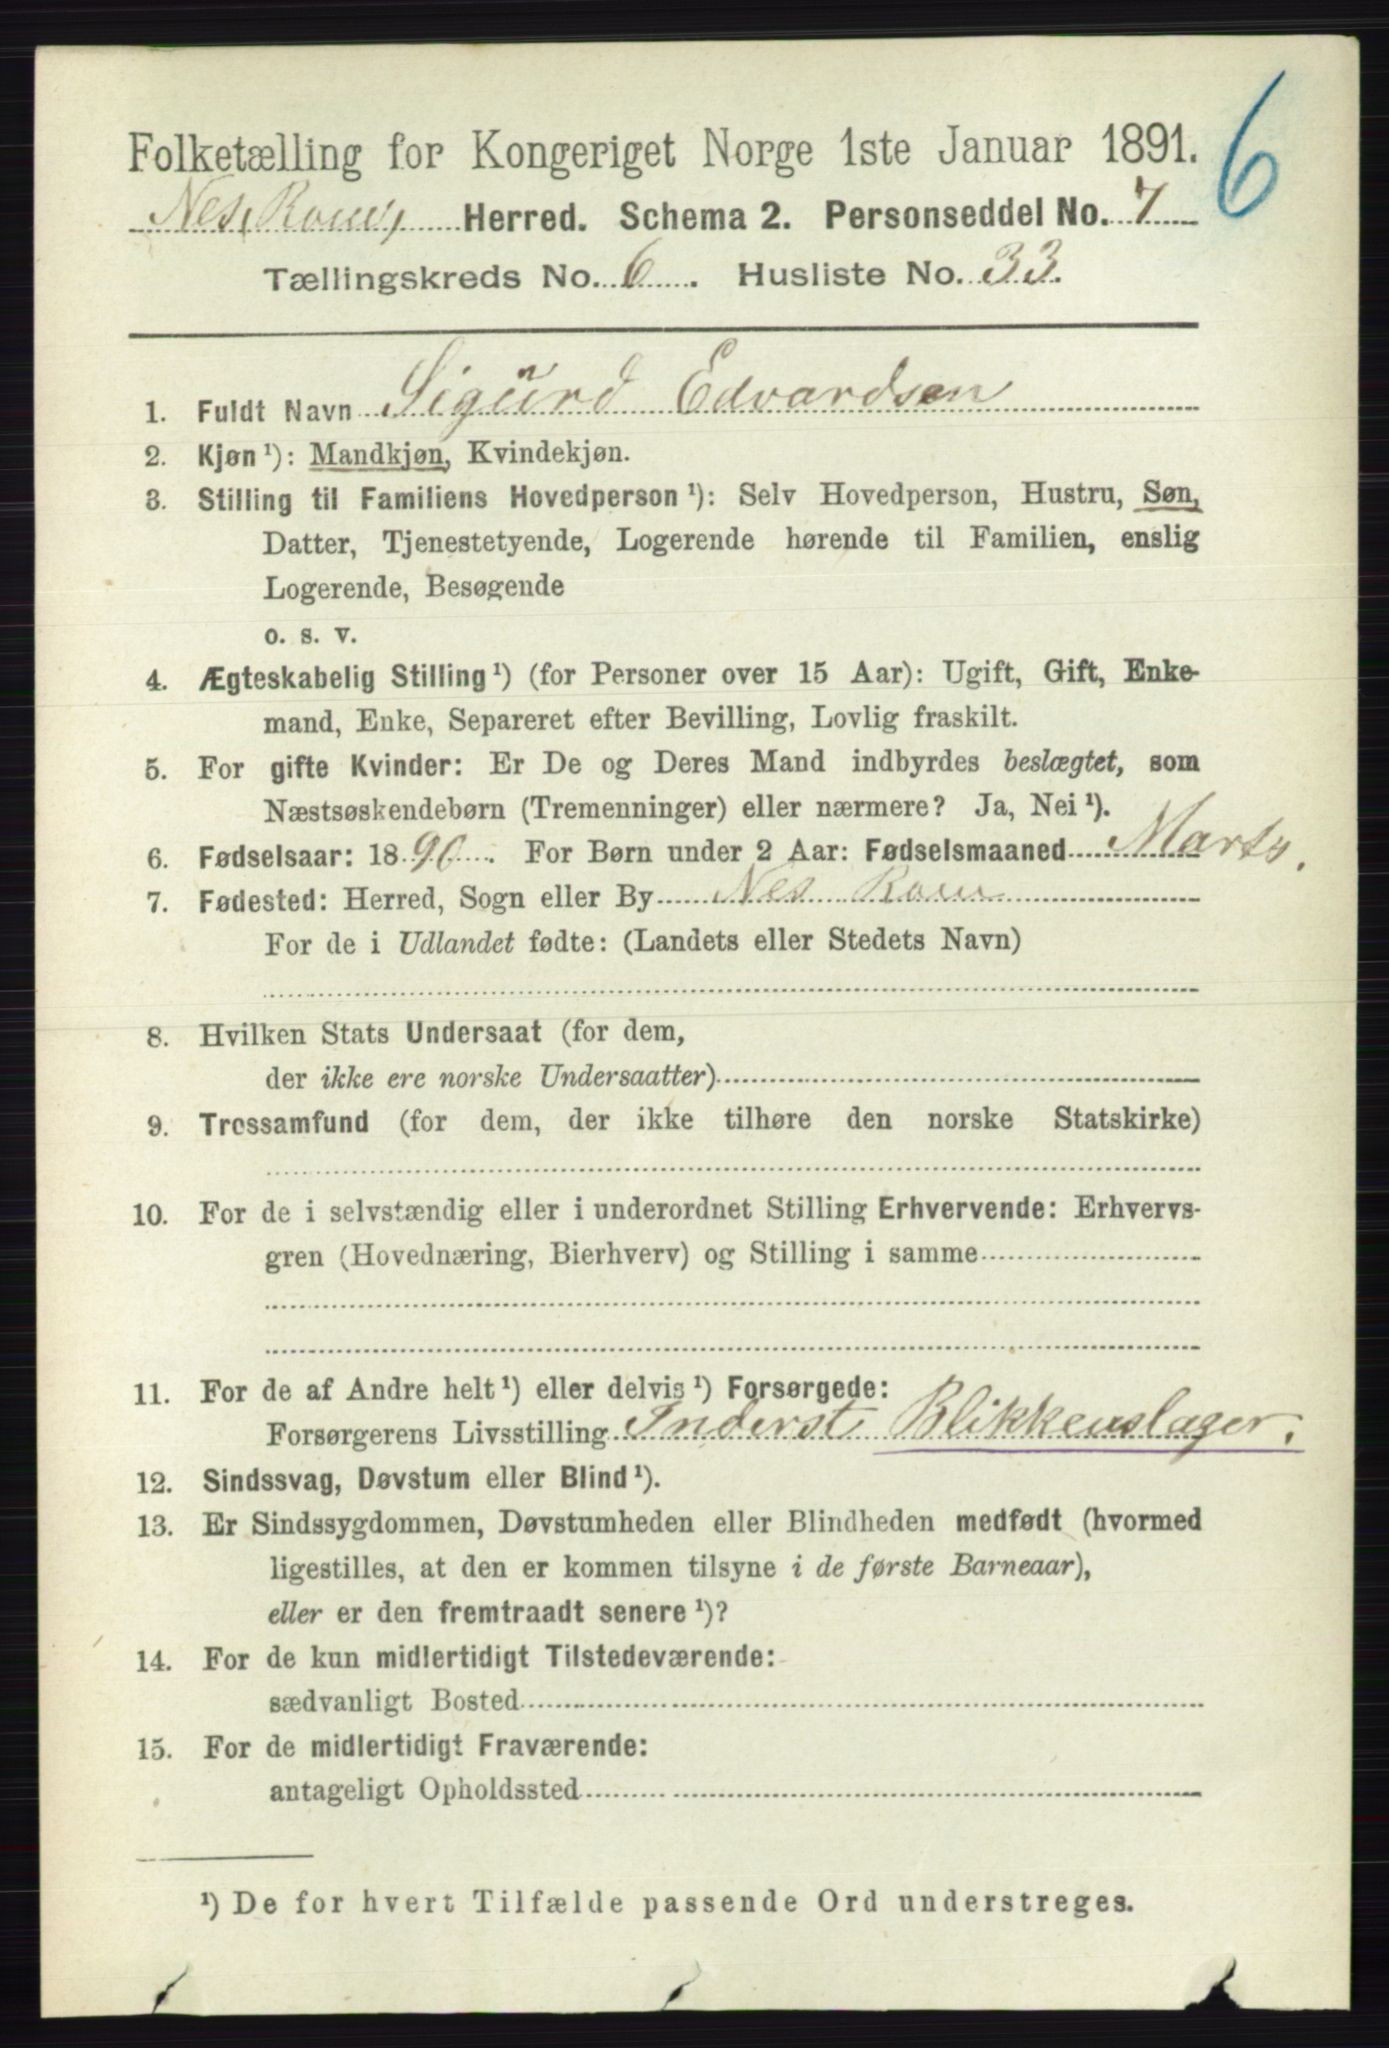 6
Folketælling for Kongeriget Norge 1ste Januar 1891.
Nes, Rom, Herred. Schema 2. Personseddel No. 7
Tællingskreds No. 6. Husliste No. 33.
1. Fuldt Navn Sigurd Edvardsen
2. Kjøn ¹): Mandkjøn, Kvindekjøn.
3. Stilling til Familiens Hovedperson ¹): Selv Hovedperson, Hustru, Søn,
Datter, Tjenestetyende, Logerende hørende til Familien, enslig
Logerende, Besøgende
o. s. v.
4. Ægteskabelig Stilling ¹) (for Personer over 15 Aar): Ugift, Gift, Enke-
mand, Enke, Separeret efter Bevilling, Lovlig fraskilt.
5. For gifte Kvinder: Er De og Deres Mand indbyrdes beslægtet, som
Næstsøskendebørn (Tremenninger) eller nærmere? Ja, Nei ¹).
6. Fødselsaar: 1890. For Børn under 2 Aar: Fødselsmaaned Marts.
7. Fødested: Herred, Sogn eller By Nes Rom
For de i Udlandet fødte: (Landets eller Stedets Navn)
8. Hvilken Stats Undersaat (for dem,
der ikke ere norske Undersaatter)
9. Trossamfund (for dem, der ikke tilhøre den norske Statskirke)
10. For de i selvstændig eller i underordnet Stilling Erhvervende: Erhvervs-
gren (Hovednæring, Bierhverv) og Stilling i samme
11. For de af Andre helt ¹) eller delvis ¹) Forsørgede:
Forsørgerens Livsstilling Inderst Blikkenslager.
12. Sindssvag, Døvstum eller Blind ¹).
13. Er Sindssygdommen, Døvstumheden eller Blindheden medfødt (hvormed
ligestilles, at den er kommen tilsyne i de første Barneaar),
eller er den fremtraadt senere ¹)?
14. For de kun midlertidigt Tilstedeværende:
sædvanligt Bosted
15. For de midlertidigt Fraværende:
antageligt Opholdssted
¹) De for hvert Tilfælde passende Ord understreges.